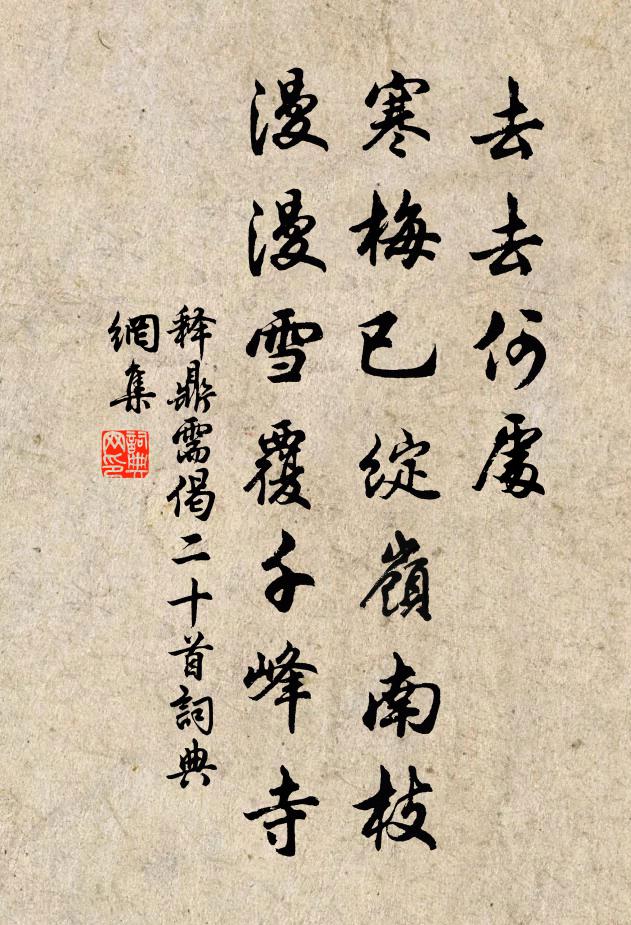 去去何處
寒梅已綻嶺南枝
漫漫雪覆千峰寺
释鼎需偈二十首詞典
網集
詞典
网印